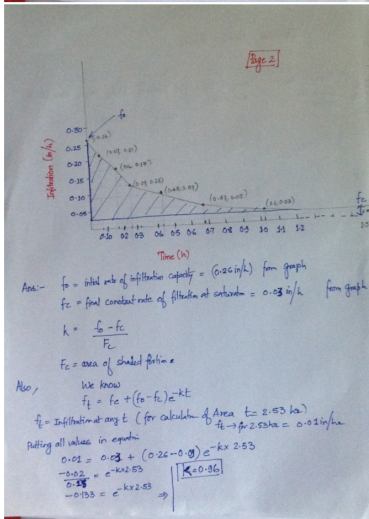 Page 2
fo
Infiltration (in/h)
0.30
0.25
0.20
0.15
0.10
0.05
(0.26)
fc
0.10 0.2 0.3 0.4 0.5 0.6 0.7 0.8 0.9 1.0 1.1 1.2
Time (h)
Ans:- fo = initial rate of infiltration capacity = (0.26 in/h) from graph
fc = final constant rate of filtration at saturation = 0.03 in/h from graph
k = fo - fc / Fc
Fc = area of shaded portion
Also, We know
ft = fc + (fo-fc)e-kt
ft = Infiltration at any t (for calculation of Area t = 2.53 hr)
ft → for 2.53 hr = 0.01 in/hr
Putting all values in equation
0.01 = 0.03 + (0.26-0.03) e-k x 2.53
-0.02 / 0.15 = e-k x 2.53
-0.133 = e-k x 2.53 ⇒ K = 0.96